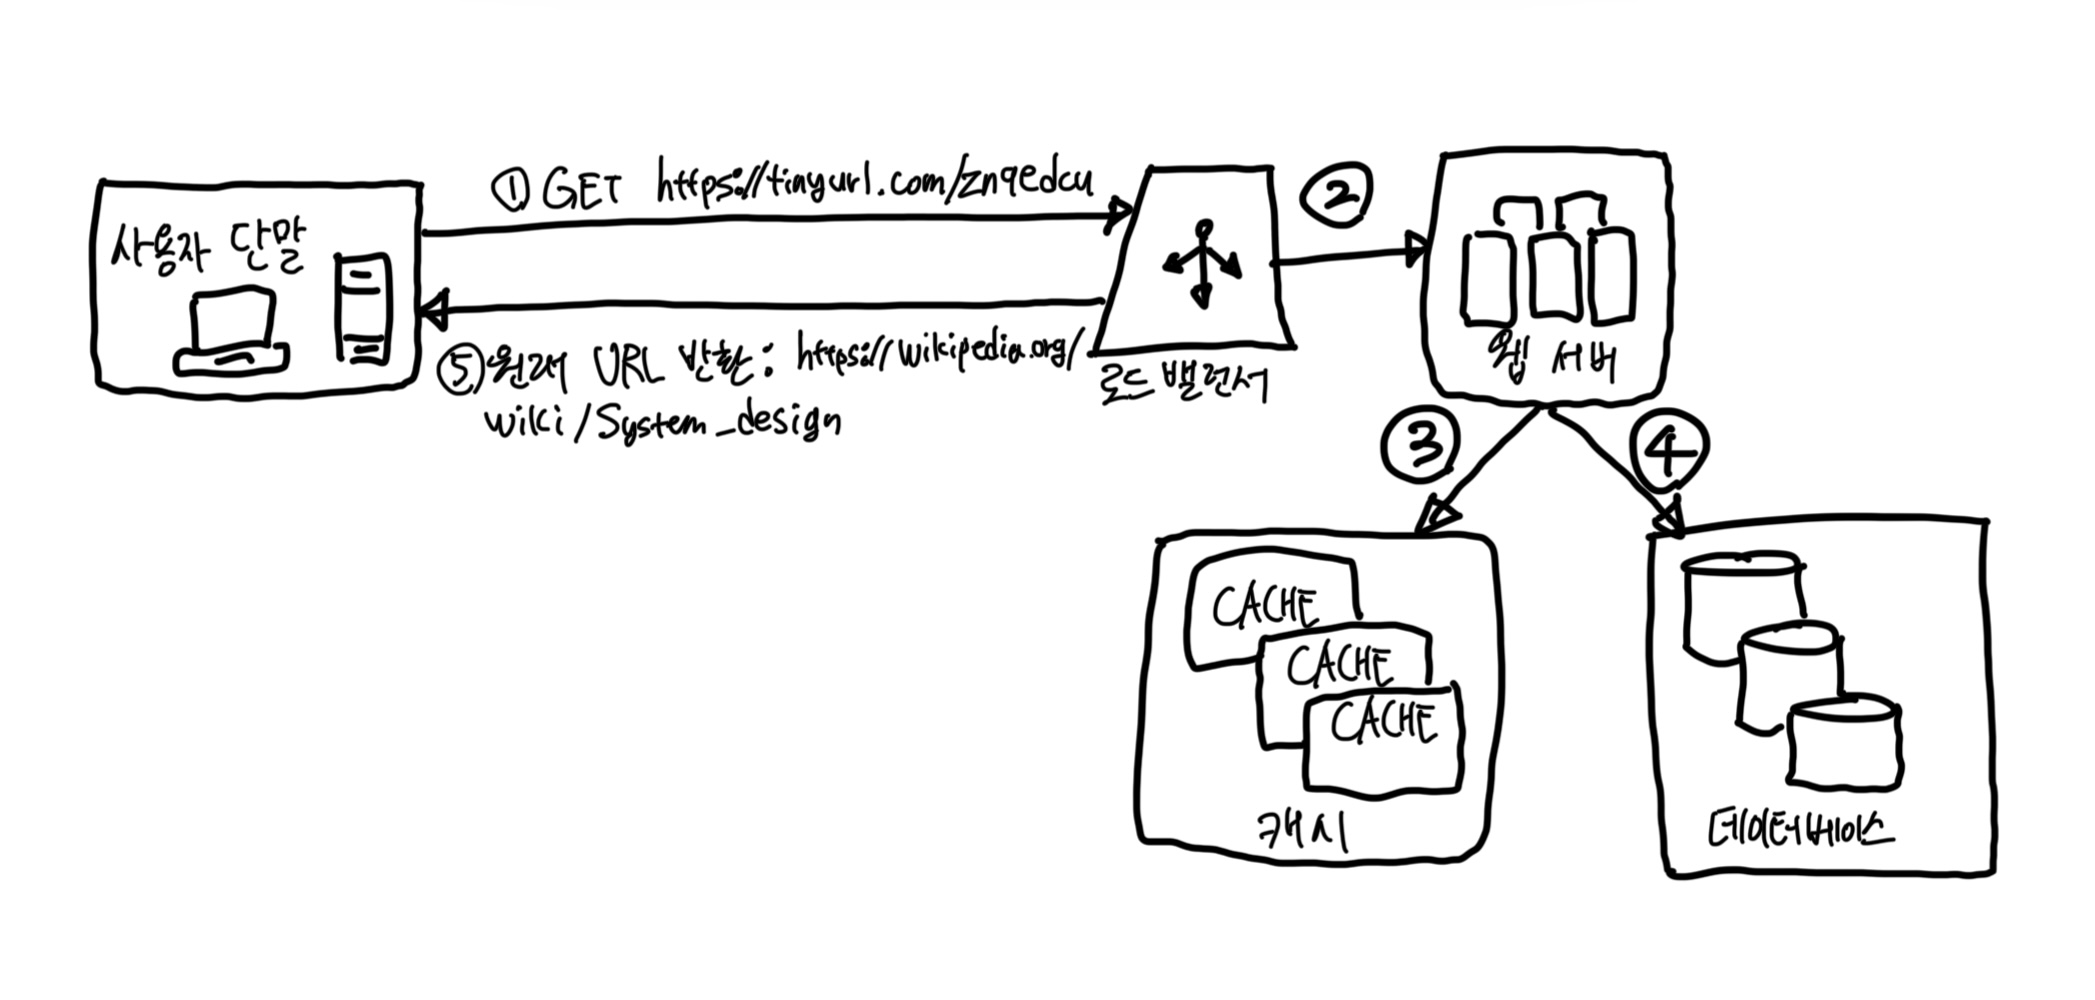 사용자 단말
① GET https://tinyurl.com/znqedcu
②
⑤ 원래 URL 반환: https://wikipedia.org/
wiki/System_design
로드 밸런서
웹 서버
③
④
CACHE
CACHE
CACHE
캐시
데이터베이스